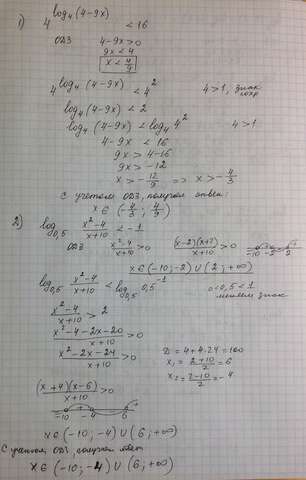 1) 4^{log₄(4-9x)} < 16
ОДЗ 4-9x>0
9x<4
x < 4/9
4^{log₄(4-9x)} < 4² 4>1, знак сохр
log₄(4-9x) < 2
log₄(4-9x) < log₄ 4² 4>1
4-9x < 16
9x > 4-16
9x > -12
x > -12/9 => x > -4/3
С учетом ОДЗ, получаем ответ:
x ∈ (-4/3; 4/9)
2) log₀,₅ (x²-4)/(x+10) < -1
ОДЗ (x²-4)/(x+10) >0 (x-2)(x+2)/(x+10) >0 -10 -2 2
x ∈ (-10; -2) ∪ (2; +∞)
log₀,₅ (x²-4)/(x+10) < log₀,₅ 0,5⁻¹ 0<0,5<1
меняем знак
(x²-4)/(x+10) > 2
(x²-4-2x-20)/(x+10) >0
(x²-2x-24)/(x+10) >0 D = 4+4·24=100
x₁ = (2+10)/2 = 6
x₂ = (2-10)/2 = -4
(x+4)(x-6)/(x+10) >0
-10 -4 6
x ∈ (-10; -4) ∪ (6; +∞)
С учетом ОДЗ, получаем ответ
x ∈ (-10; -4) ∪ (6; +∞)